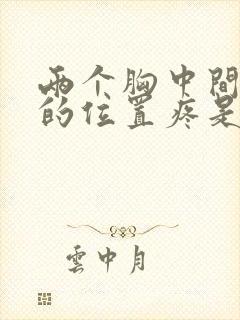 两个胸中間
的位置疼是
雲中月